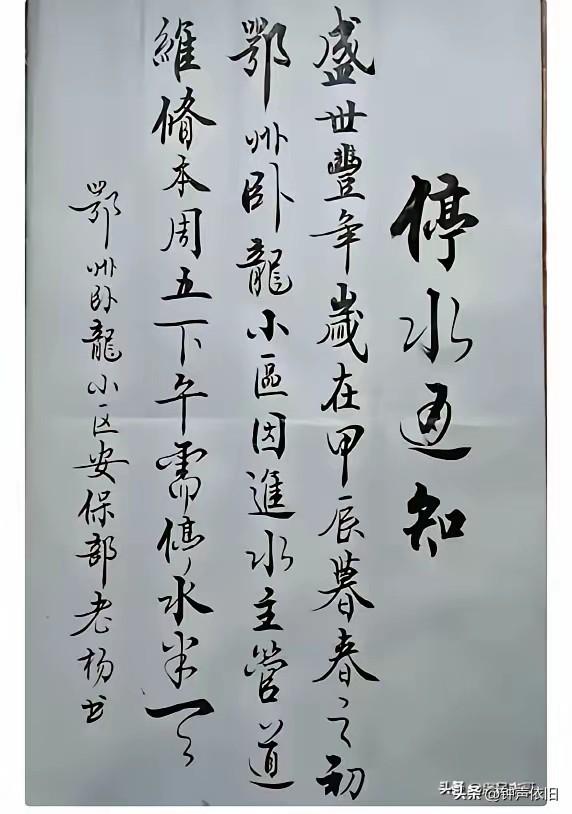 停水通知
盛世豐年歲在甲辰暮春之初
鄂州卧龍小區因進水主管道
維脩本周五下午需停水半天
鄂州卧龍小区安保部老杨书
头条 @钟声依旧